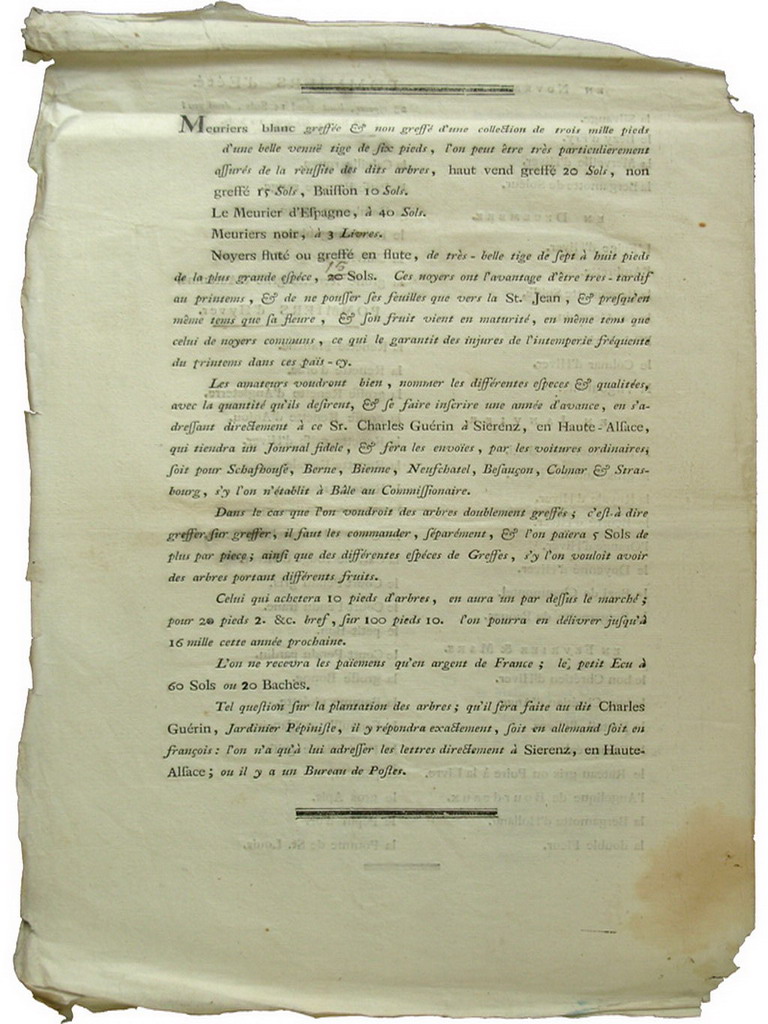 Meuriers blanc greffée & non greffé d'une collection de trois mille pieds
d'une belle venuë tige de ſix pieds, l'on peut être très particulierement
aſſurés de la réuſſite des dits arbres, haut vend greffé 20 Sols, non
greffé 15 Sols, Baiſſon 10 Sols.
Le Meurier d'Eſpagne, à 40 Sols.
Meuriers noir, à 3 Livres.
Noyers fluté ou greffé en flute, de très-belle tige de ſept à huit pieds
15
de la plus grande eſpéce, 20 Sols. Ces noyers ont l'avantage d'être tres-tardif
au printems, & de ne pouſſer ſes feuilles que vers la St. Jean, & preſqu'en
même tems que ſa fleure, & ſon fruit vient en maturité, en même tems que
celui de noyers communs, ce qui le garantit des injures de l'intemperie fréquente
du printems dans ces païs-cy.
Les amateurs voudront bien, nommer les différentes eſpeces & qualitées,
avec la quantité qu'ils deſirent, & ſe faire inſcrire une année d'avance, en s'a-
dreſſant directement à ce Sr. Charles Guérin à Sierenz, en Haute-Alſace,
qui tiendra un Journal fidele, & ſera les envoïes, par les voitures ordinaires,
ſoit pour Schafhouſe, Berne, Bienne, Neufchatel, Beſançon, Colmar & Stras-
bourg, s'y l'on n'établit à Bâle au Commiſſionaire.
Dans le cas que l'on voudroit des arbres doublement greffés; c'eſt-à dire
greffer ſur greffer, il faut les commander, ſéparément, & l'on païera 5 Sols de
plus par piece; ainſi que des différentes eſpéces de Greffes, s'y l'on vouloit avoir
des arbres portant différents fruits.
Celui qui achetera 10 pieds d'arbres, en aura un par deſſus le marché;
pour 20 pieds 2. &c. bref, ſur 100 pieds 10. l'on pourra en délivrer juſqu'à
16 mille cette année prochaine.
L'on ne recevra les païemens qu'en argent de France; le petit Ecu à
60 Sols ou 20 Baches.
Tel queſtion ſur la plantation des arbres; qu'il ſera faite au dit Charles
Guérin, Jardinier Pépiniſte, il y répondra exactement, ſoit en allemand ſoit en
françois: l'on n'a qu'à lui adreſſer les lettres directement à Sierenz, en Haute-
Alſace; ou il y a un Bureau de Poſtes.